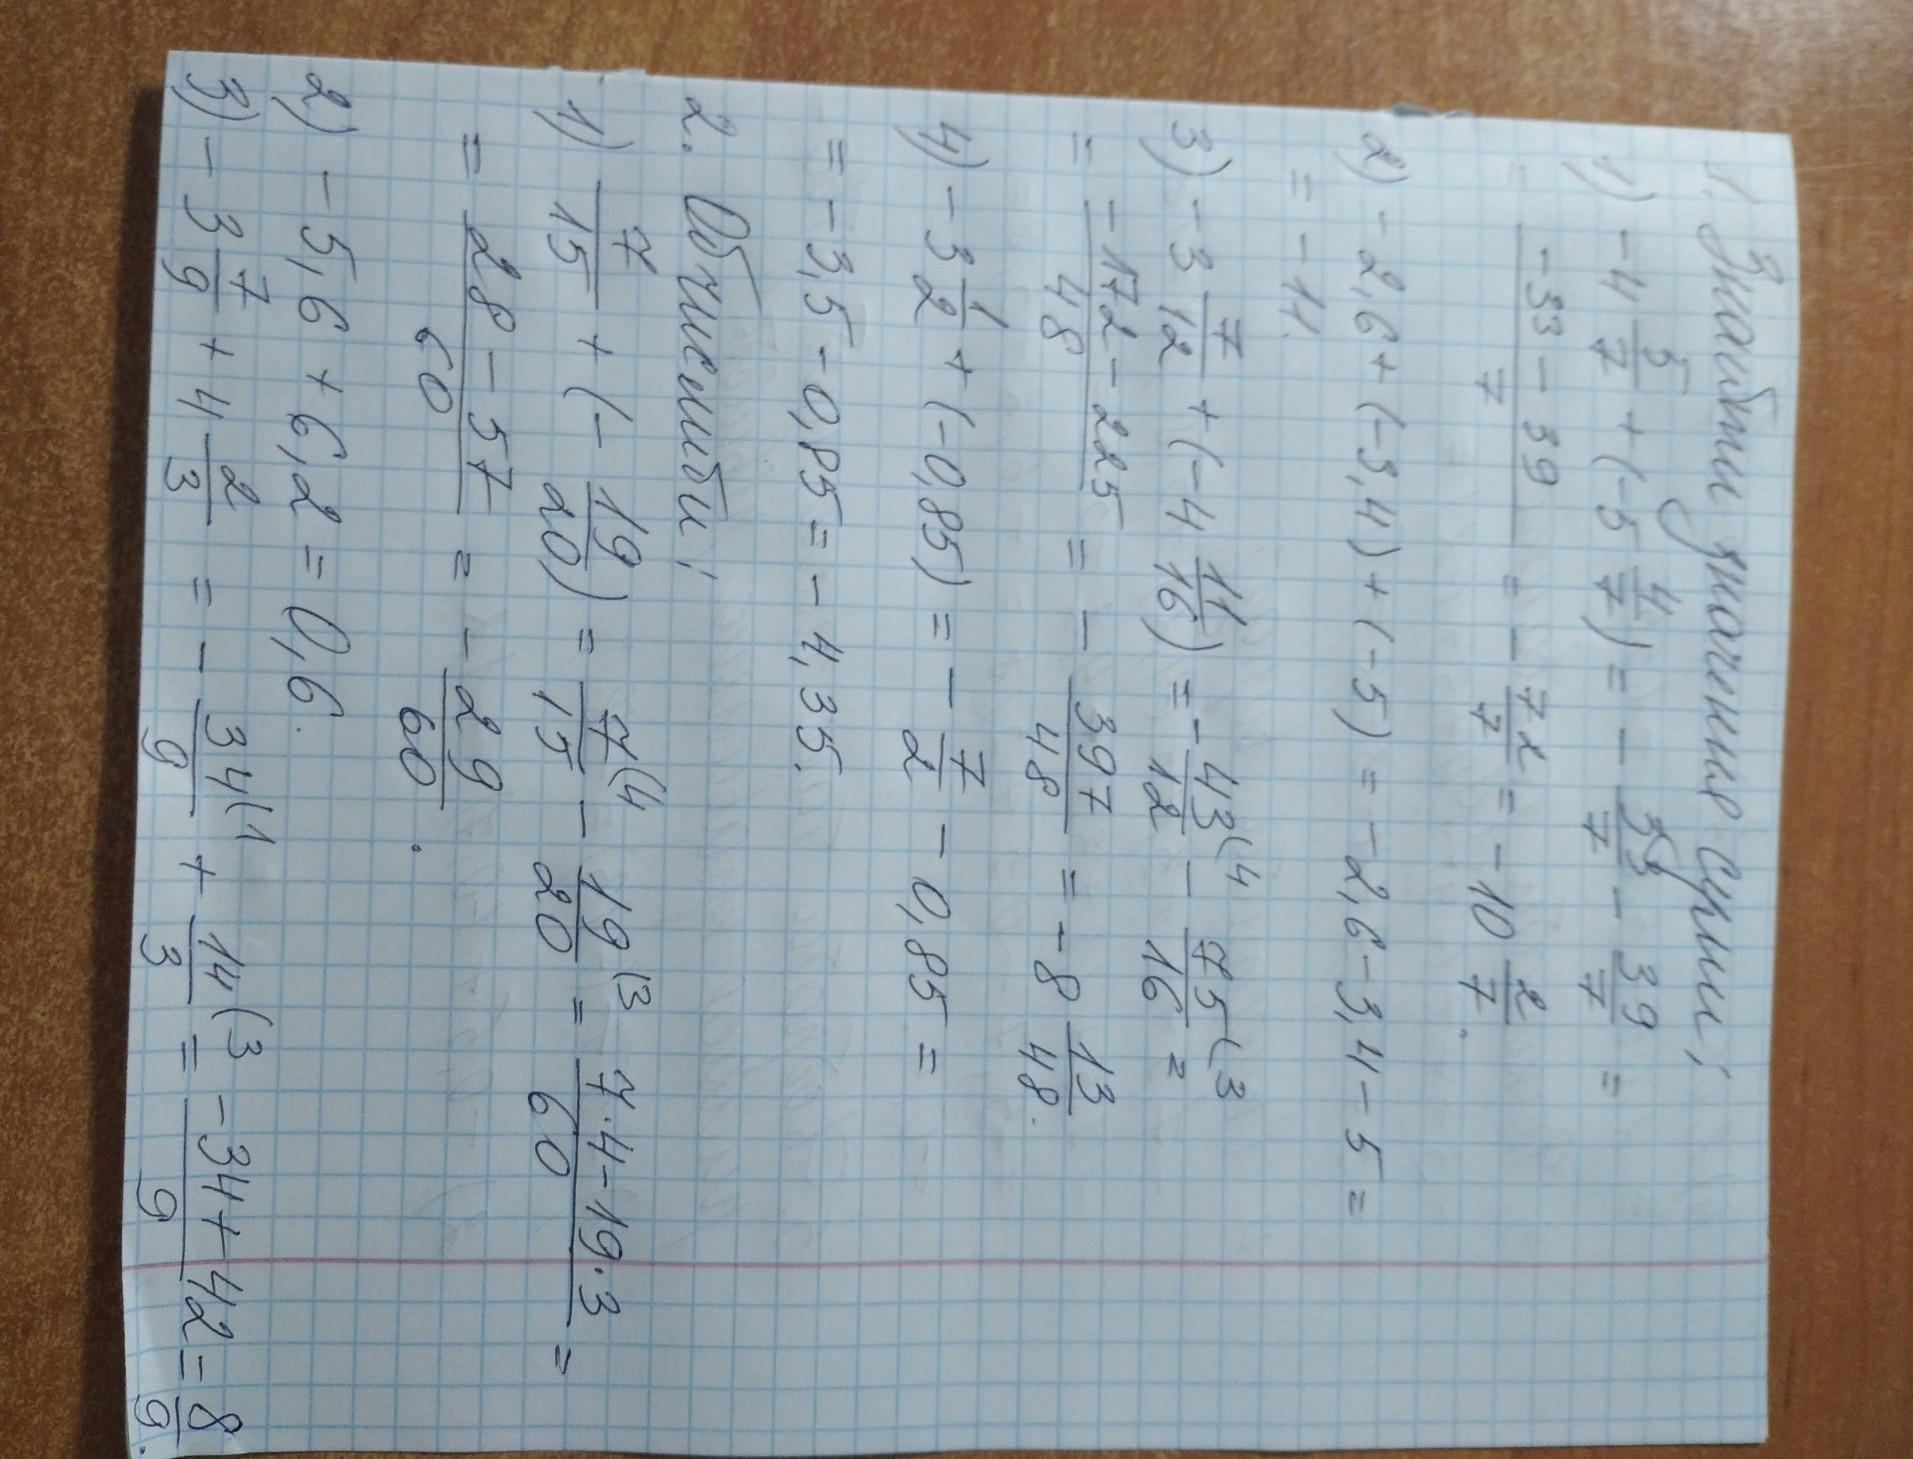 1. Знайти значення суми:
1) -4 5/7 + (-5 4/7) = - 33/7 - 39/7 =
= (-33 - 39)/7 = - 72/7 = - 10 2/7.
2) -2,6 + (-3,4) + (-5) = -2,6 - 3,4 - 5 =
= -11.
3) -3 7/12 + (-4 11/16) = - 43(4/12 - 75(3/16 =
= (-172 - 225)/48 = - 397/48 = - 8 13/48.
4) -3 1/2 + (-0,85) = - 7/2 - 0,85 =
= -3,5 - 0,85 = - 4,35.
2. Обчислити:
1) 7/15 + (- 19/20) = 7(4/15 - 19(3/20 = (7·4-19·3)/60 =
= (28 - 57)/60 = - 29/60.
2) -5,6 + 6,2 = 0,6.
3) -3 7/9 + 4 2/3 = - 34(1/9 + 14(3/3 = (-34+42)/9 = 8/9.